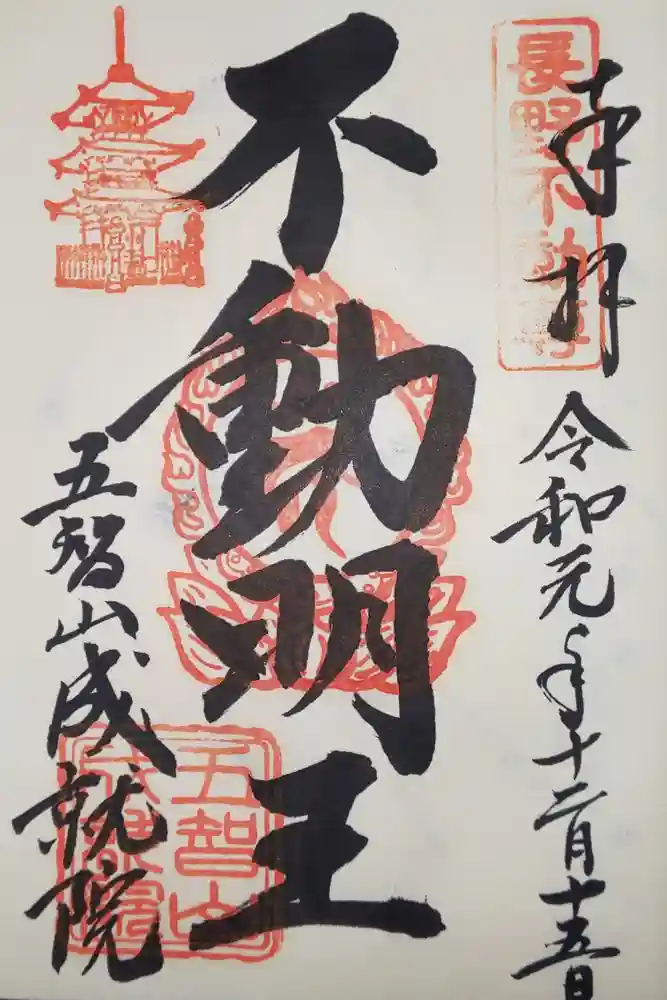 奉拝
長野不動尊
令和元年十二月十五日
不動明王
五智山成就院
五智山
成就院